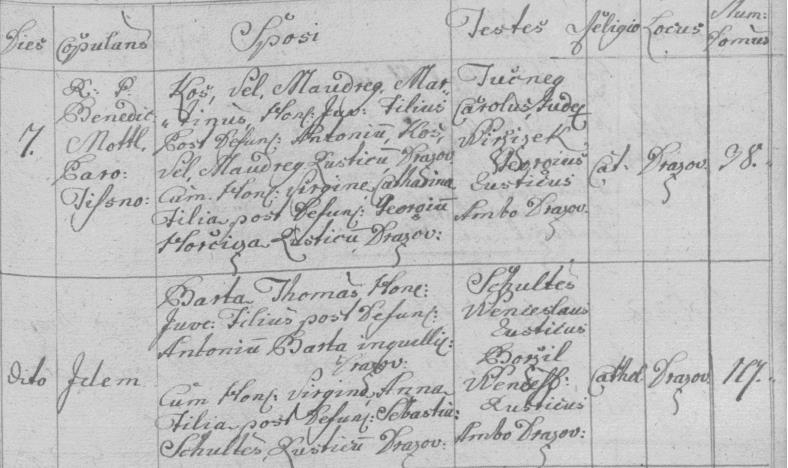 Dies Copulans Sposi Testes Religio Locus Num: Domus
7.
R: P.
Benedic:
Mottl.
Paro:
Tissno:
Koš, Vel, Maudreg, Mar„
„tinus, Hon: Juv: Filius
Post Defun: Antonium Koš,
Vel, Maudreg Rusticum Drazov
Cum Hon: Virgine Catharina
Filia post Defun: Georgium
Horčiga Rusticum Drazov:
Tučneg
Carolus, Judex
Georgius
Rusticus
Ambo Drazov:
Cat.
Drazov.
98.
dito
Idem
Barta Thomas, Hone:
Juve: Filius post Defun:
Antonium Barta inquilli:
Drazov:
Cum Hon: Virgine Anna
Filia post Defun: Sebastia:
Schultes, Rusticum Drazov:
Schultes
Wenceslaus
Rusticus
Boržil
Rusticus
Ambo Drazov:
Cathol
Drazov
117.